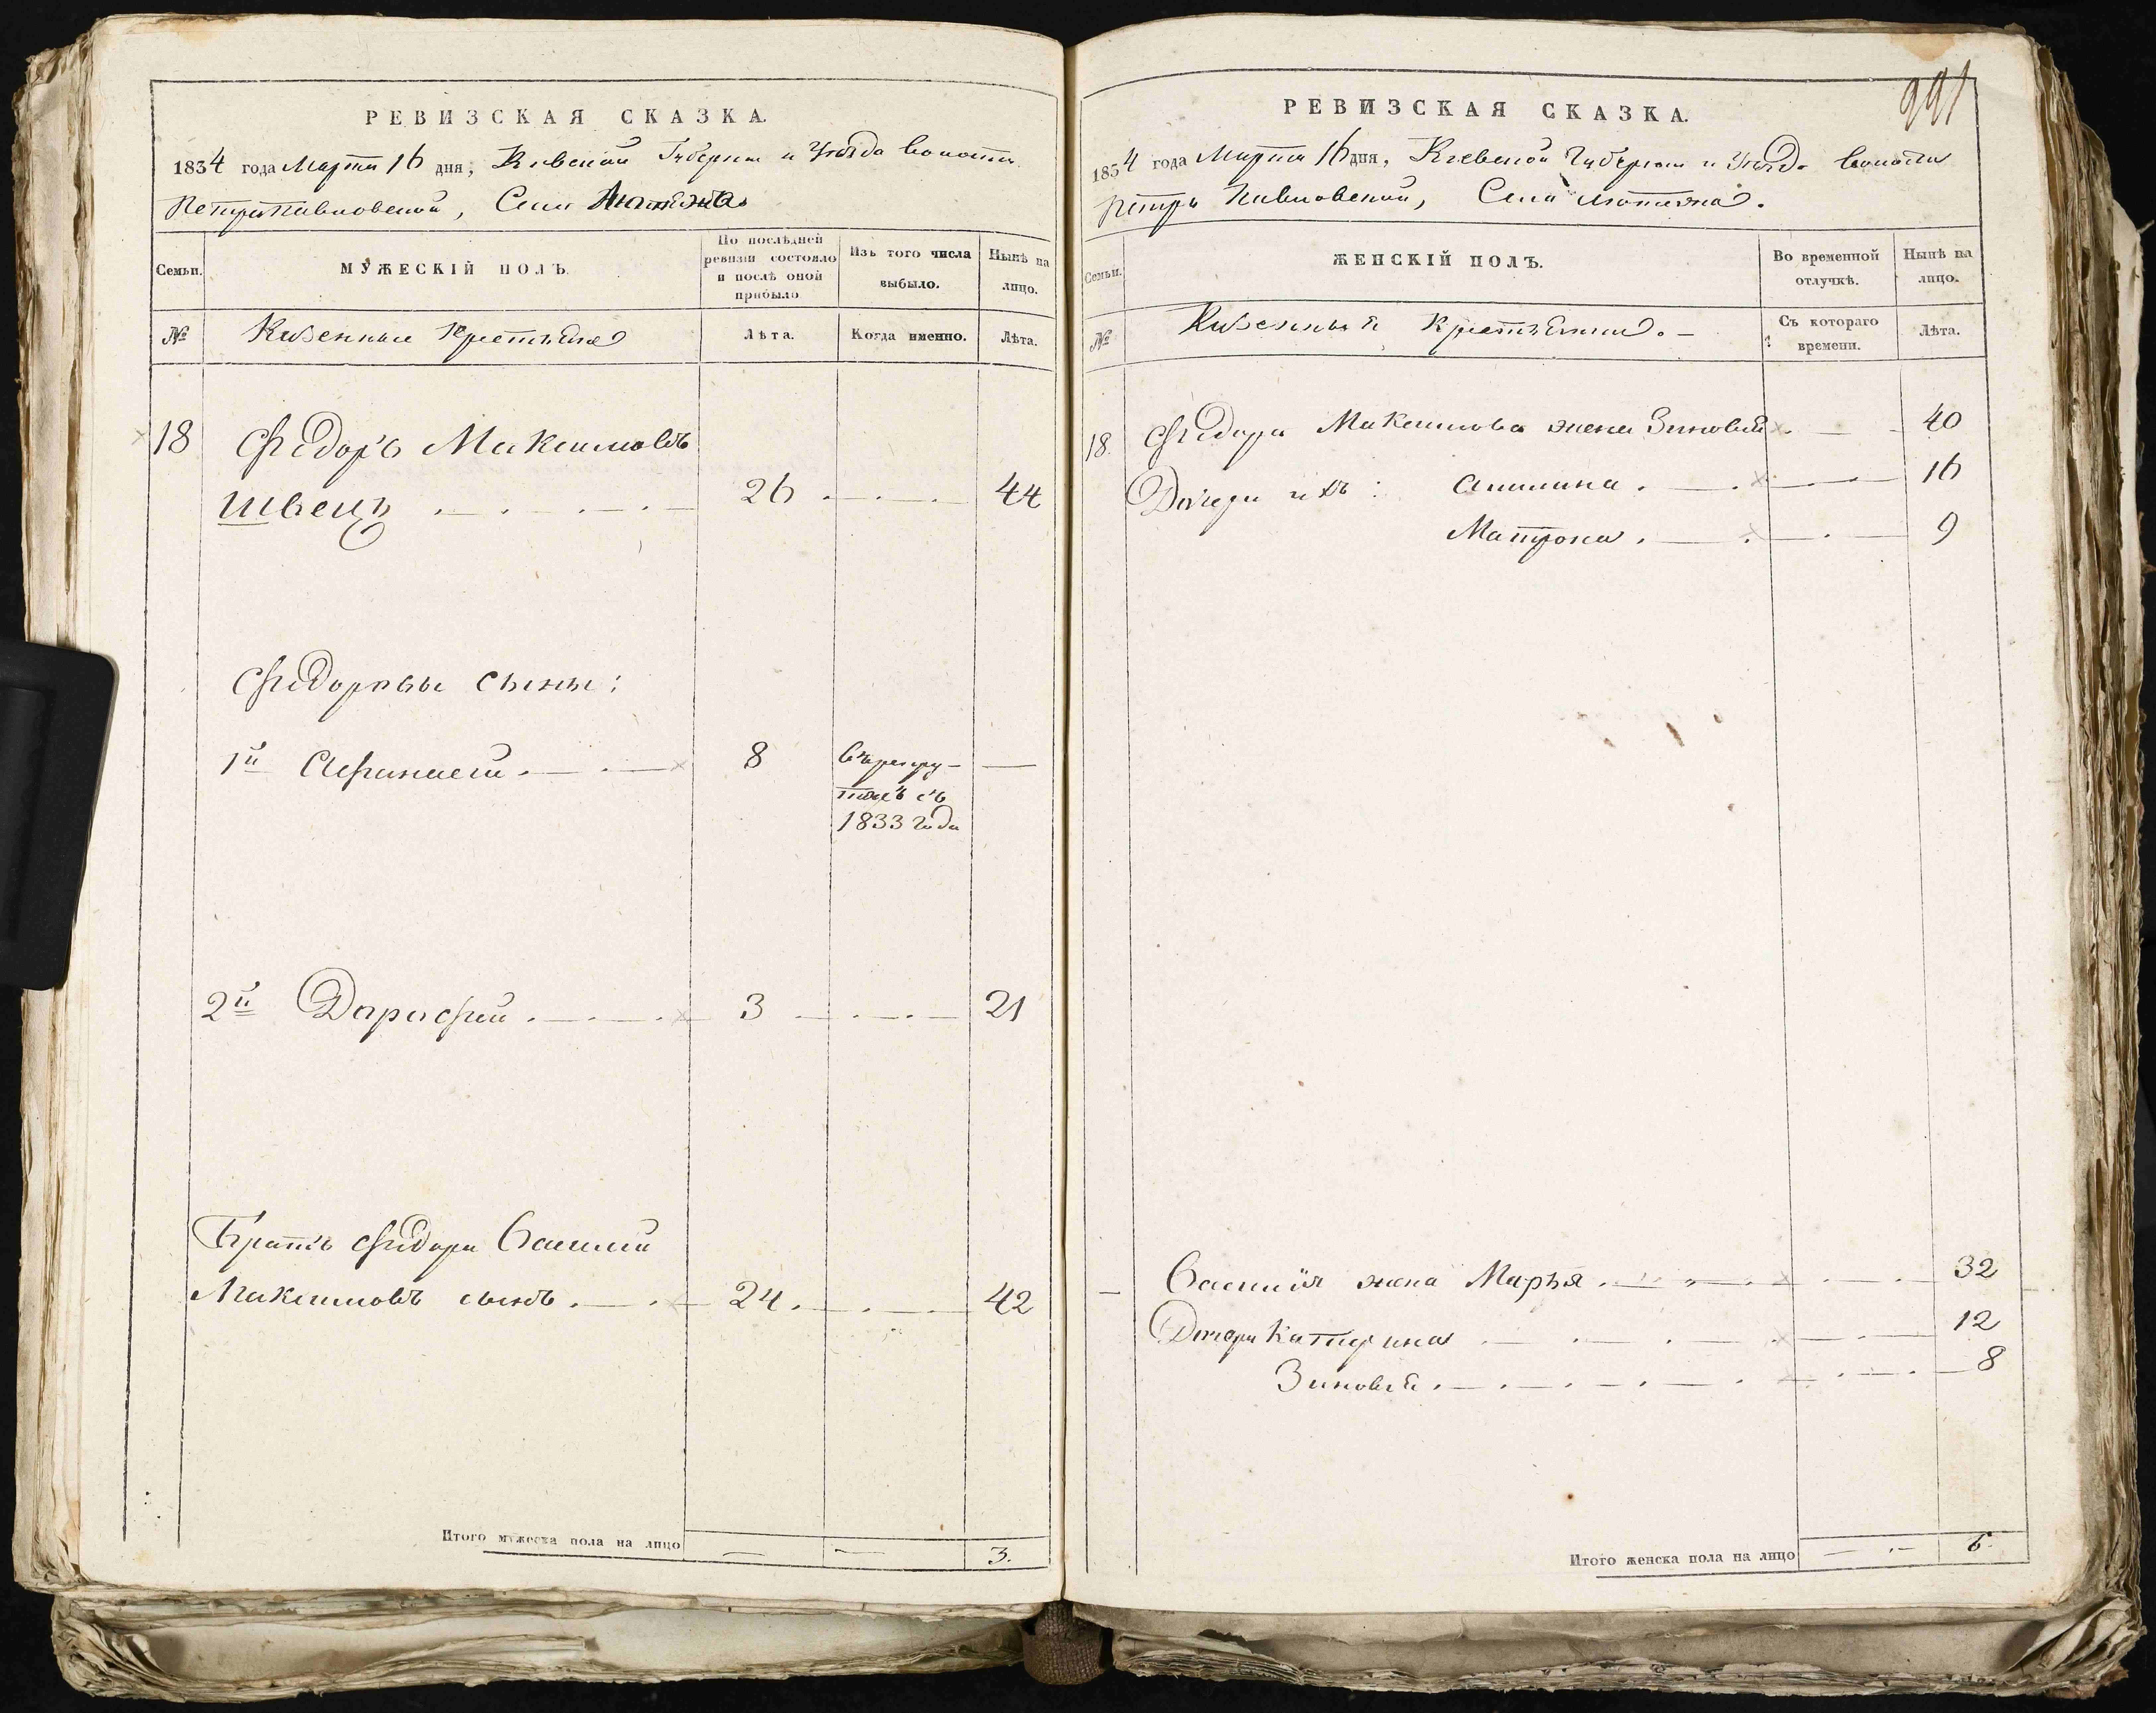 РЕВИЗСКАЯ СКАЗКА.
1834 года Марта 16 дня, Киевской Губернии и Уезда волости
Петропавловской, Села
Семьи.
МУЖЕСКІЙ ПОЛЪ.
По послѣдней ревизіи состояло и послѣ оной прибыло
Изъ того числа выбыло.
Нынѣ на лицо.
№
Казенные Крестьяне
Лѣта.
Когда именно.
Лѣта.
18 Федоръ Максимовъ
Швецъ 26 44
Федоровы сыны:
1й Афанасей 8 въ рекру-
тахъ съ
1833 года
2й Дорофей 3 21
Братъ Федора Василий
Максимовъ сынъ 24 42
Итого мужеска пола на лицо 3.
991
РЕВИЗСКАЯ СКАЗКА.
1834 года Марта 16 дня, Киевской Губернии и Уезда волости
Петро Павловской, Села
Семьи.
ЖЕНСКІЙ ПОЛЪ.
Во временной отлучкѣ.
Нынѣ на лицо.
№
Казенныя Крестьянки
Съ котораго времени.
Лѣта.
18. Федора Максимова жена Зиновия 40
Дочери ихъ: 16
Матрона 9
Василия жена Марья 32
Дочери Катерина 12
Зиновия 8
Итого женска пола на лицо 6.